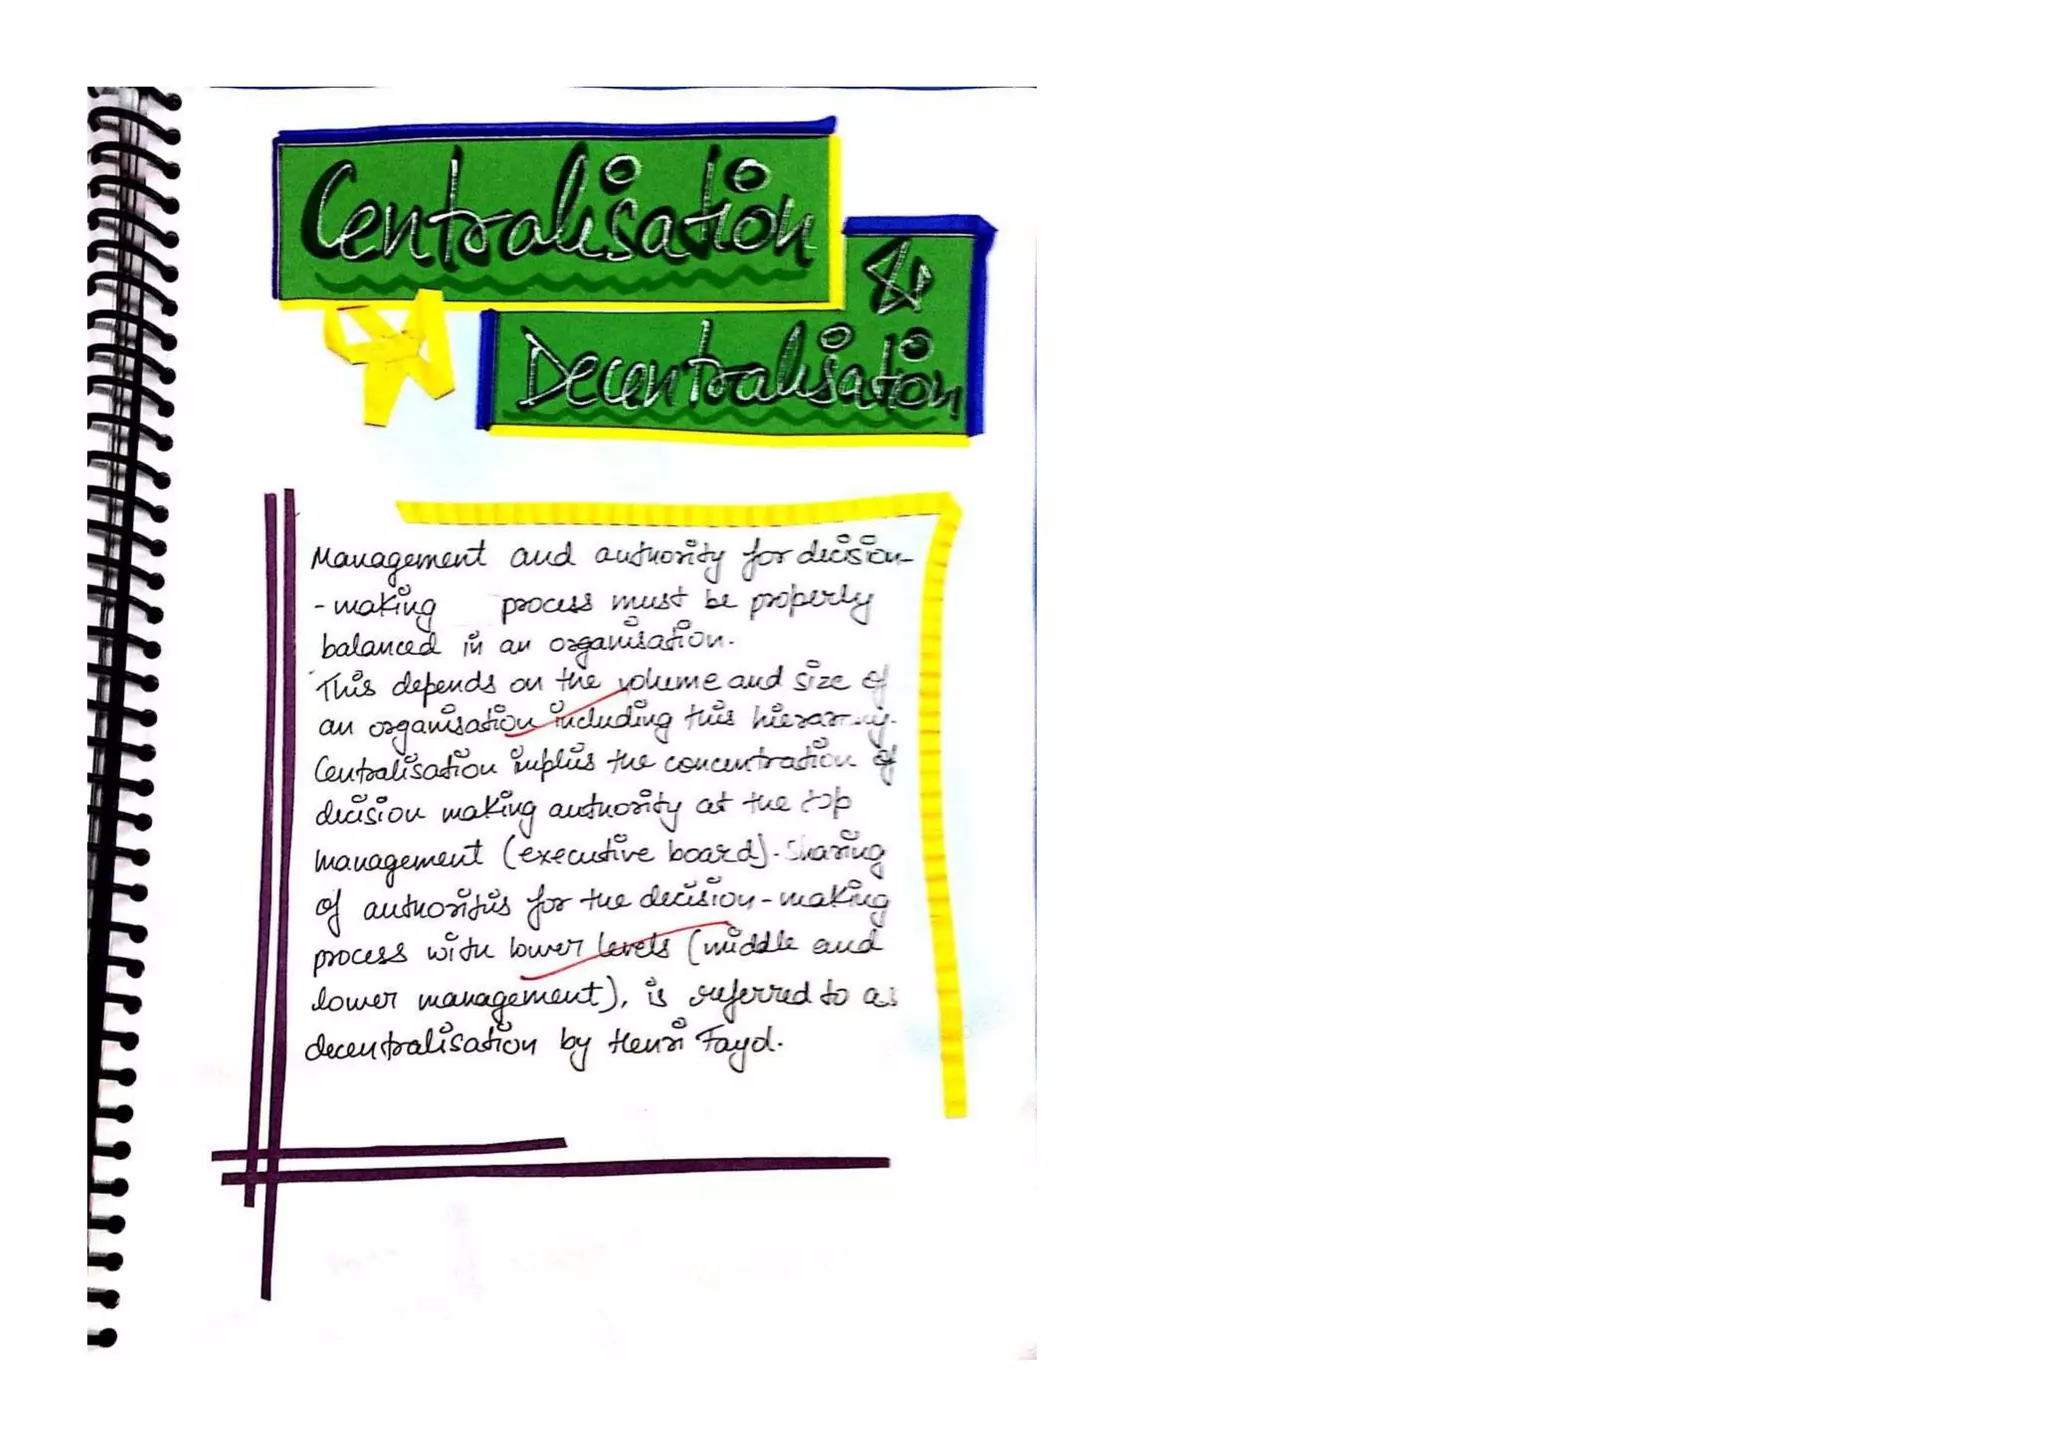 Centralisation
&
Decentralisation
Management and authority for decision-
- making process must be properly
balanced in an organisation.
This depends on the volume and size of
an organisation including this hierarchy.
Centralisation implies the concentration of
decision making authority at the top
management (executive board). Sharing
of authorities for the decision-making
process with lower levels (middle and
lower management), is referred to as
decentralisation by Henri Fayol.